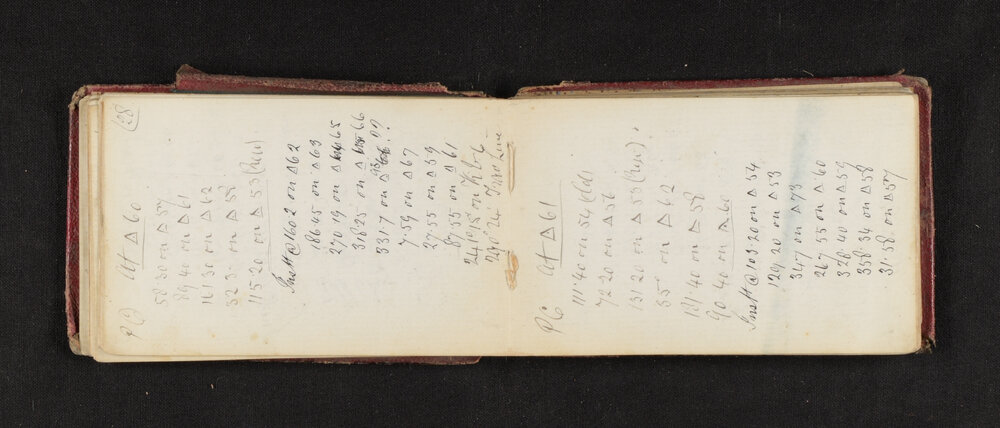 28
P C At △ 60
58·30 on △ 57
89·40 on △ 61
121·30 on △ 62
323·- on △ 59
115·20 on △ 53
Inst @ 160·2 on △ 62
186·45 on △ 63
270·19 on △ 65
318·25 on △ 66
331·7 on △
7·59 on △ 67
27·55 on △ 59
87·55 on △ 61
241°15' on
290°24 Line
P C at △ 61
111·40 on 54
72·20 on △ 56
131·20 on △ 53
35 on △ 62
121·40 on △ 58
90·40 on △ 60
Inst @ 103·20 on △ 54
129·20 on △ 53
347 on △ 73
267·55 on △ 60
328·40 on △ 59
358·34 on △ 58
31·58 on △ 57